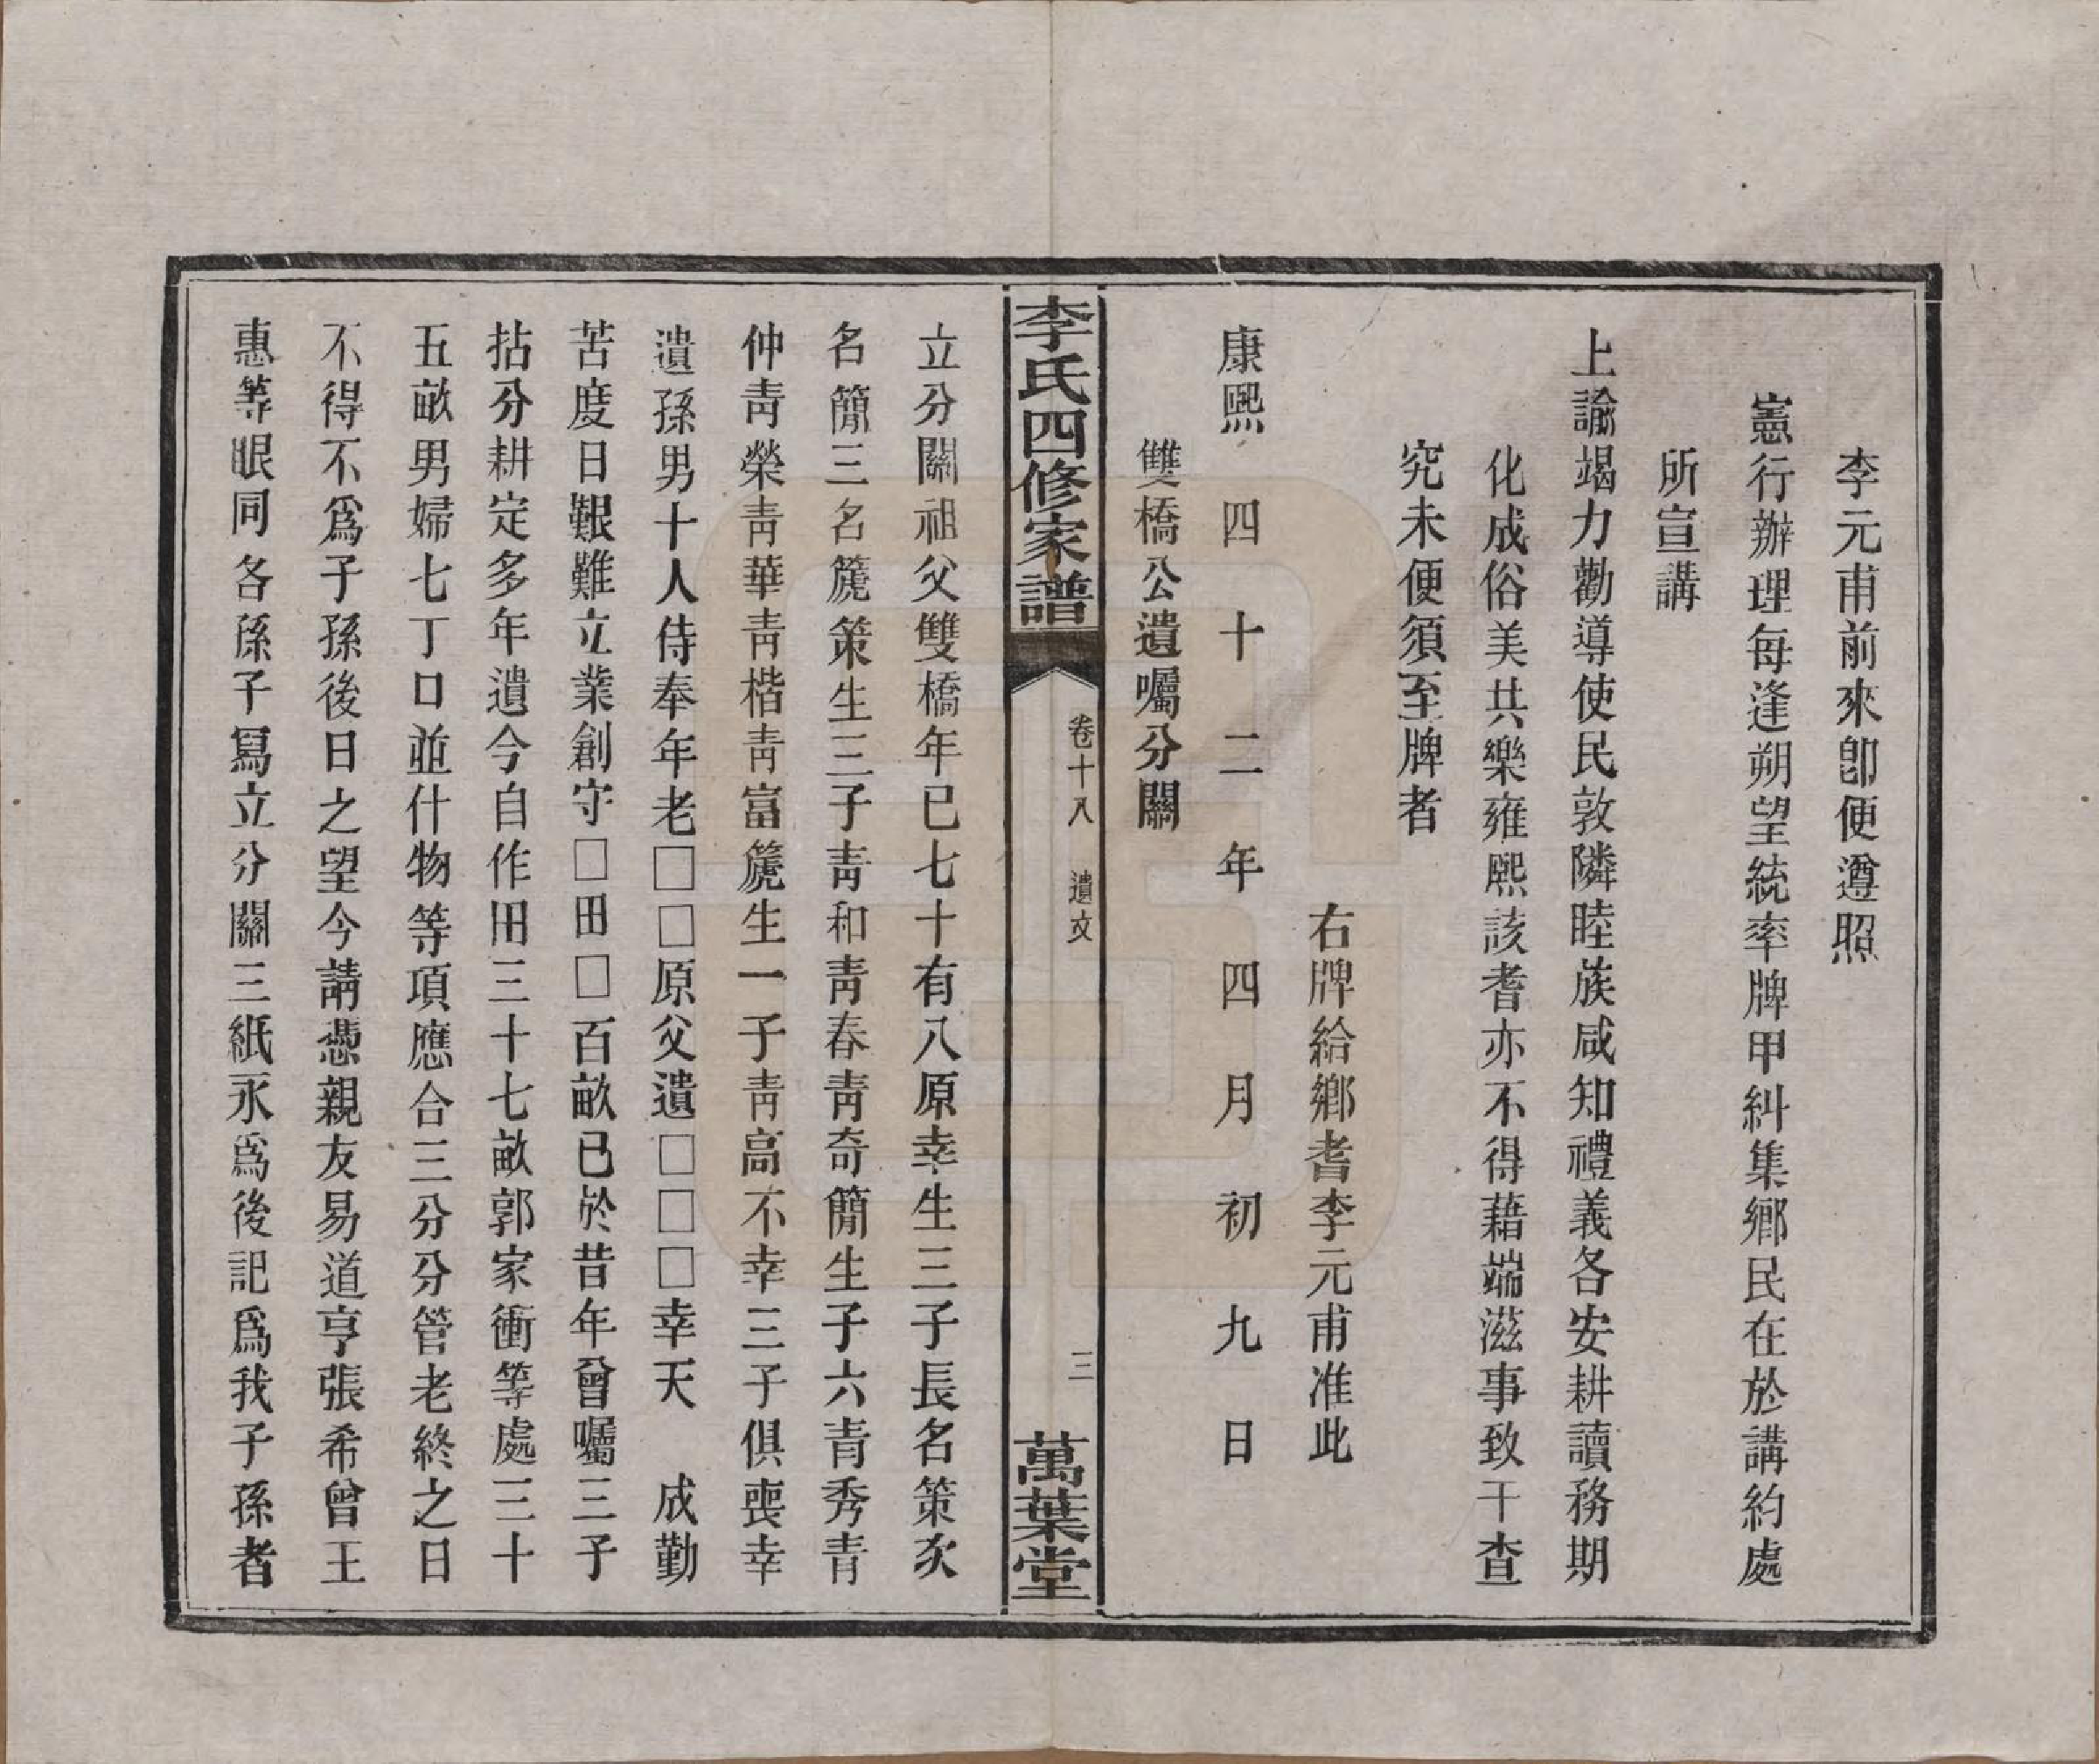 李元甫前來卽便遵照
憲行辦理每逢朔望統率牌甲糾集鄉民在於講約處
所宣講
上諭竭力勸導使民敦隣睦族咸知禮義各安耕讀務期
化成俗美共樂雍熙該耆亦不得藉端滋事致干查
究未便須至牌者
右牌給鄉耆李元甫准此
康熙四十二年四月初九日
雙橋公遺囑分關
李氏四修家譜
卷十八 遺文
三
萬葉堂
立分關祖父雙橋年已七十有八原幸生三子長名策次
名簡三名篪策生三子靑和靑春靑奇簡生子六靑秀靑
仲靑榮靑華靑楷靑富篪生一子靑高不幸三子俱喪幸
遺孫男十人侍奉年老□□原父遺□□□幸天 成勤
苦度日艱難立業創守□田□百畝已於昔年曾囑三子
拈分耕定多年遺今自作田三十七畝郭家衝等處三十
五畝男婦七丁口並什物等項應合三分分管老終之日
不得不爲子孫後日之望今請憑親友易道亨張希曾王
惠等眼同各孫子寫立分關三紙永爲後記爲我子孫者